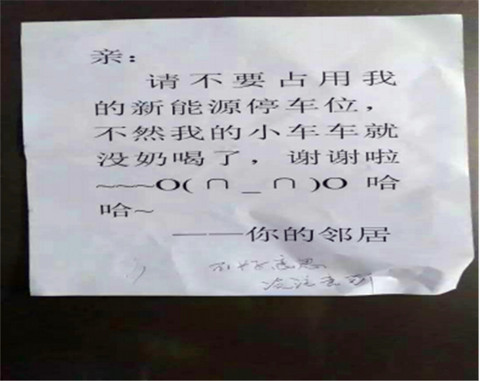 亲：
请不要占用我
的新能源停车位，
不然我的小车车就
没奶喝了，谢谢啦
~~~O(∩_∩)O 哈
哈~
——你的邻居
不好意思